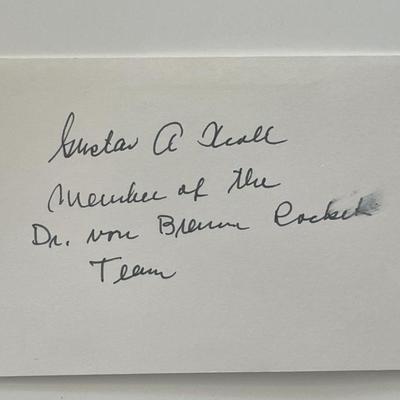 Gustav A Kroll
Member of the
Dr. von Braun Rocket
Team